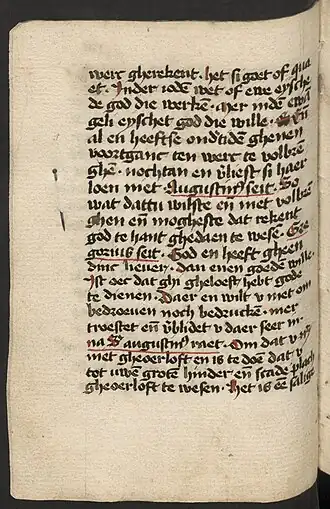 werc gherekent. het si goet of qua
et. Inder ioden wet of ewe eysche
de god die werkē. Mer indē ewā
geli eyschet god die wille. Eñ
al en heeftse ondtiden ghenen
voortganc ten werc te volbrē
ghē. nochtan en v̄liest si haer
loen niet. Augustinꝰ seit. So
wat dattu wilste en niet volbrē
ghen eñ mogheste dat rekent
god te hant ghedaen te wesē. Gre
gorius seit. God en heeft gheen
dinc lieuer. dan enen goedē wille.
Ist oec dat ghi gheloeft hebt gode
te dienen. Daer en wilt v niet om
bedroeuen noch bedruckē. mer
troestet eñ v̄blidet v daer seer in.
na S augustinꝰ raet. Om dat v nv
niet gheoerloft en is te doē dat v
tot uwen grotē hinder eñ scade plach
gheoerloft te wesen. Het is eē salige